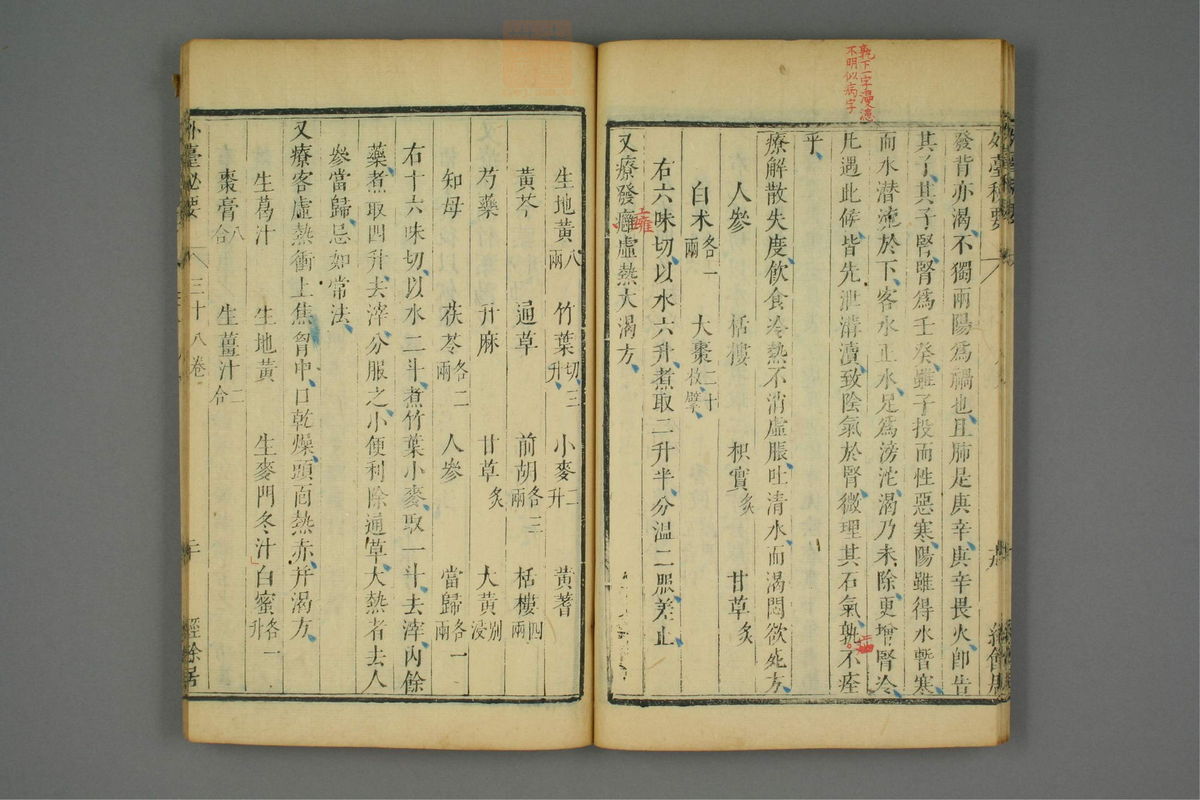 孰下一字漫漶
不明似病字
發背亦渴不獨兩陽爲禍也且肺是庚辛庚辛畏火卽告
其子其子腎腎爲壬癸雖子投而性惡寒陽雖得水暫寒
而水潜流於下客水正水足爲滂沱渴乃未除更增腎冷
凡遇此候皆先泄溝瀆致陰氣於腎微理其石氣孰不痊
乎
療解散失度飲食冷熱不消虛脹吐清水而渴悶欲死方
人參 栝樓 枳實炙 甘草炙
白术各一兩 大棗二十枚擘
右六味切以水六升煮取二升半分溫二服差止
又療發癰虛熱大渴方
癰
生地黃八兩 竹葉切三升 小麥二升 黃蓍
黃芩 通草 前胡各三兩 栝樓四兩
芍藥 升麻 甘草炙 大黃別浸
知母 茯苓各二兩 人參 當歸各一兩
右十六味切以水二斗煮竹葉小麥取一斗去滓內餘
藥煮取四升去滓分服之小便利除通草大熱者去人
參當歸忌如常法
又療客虛熱衝上焦胷中口乾燥頭面熱赤并渴方
生葛汁 生地黃 生麥門冬汁 白蜜各一升
棗膏八合 生薑汁二合
外臺秘要 三十八卷 二 經餘居